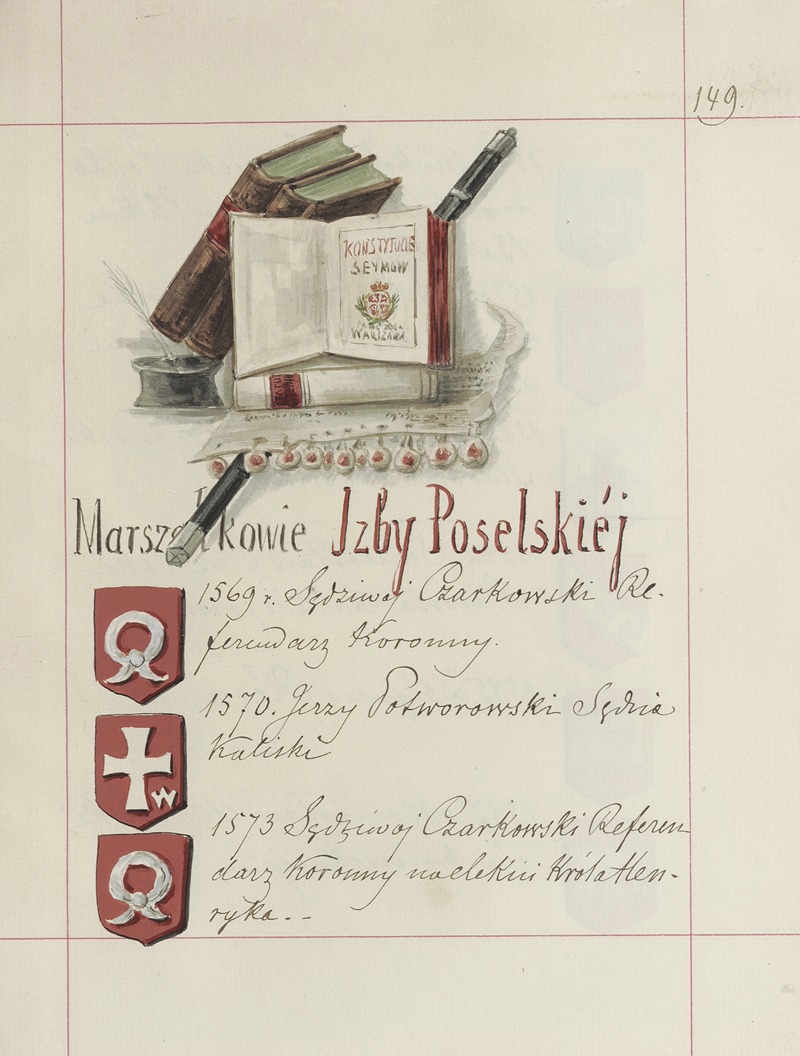 149.
KONSTYTUCIE
SEYMOW
WARSZAWA
Marszałkowie Izby Poselskiéj
1569 r. Sędziwoj Czarkowski Re-
ferendarz Koronny.
1570. Jerzy Potworowski Sędzia
Kaliski
W
1573 Sędziwoj Czarkowski Referen
darz Koronny na elekcii Króla Hen-
ryka. - -